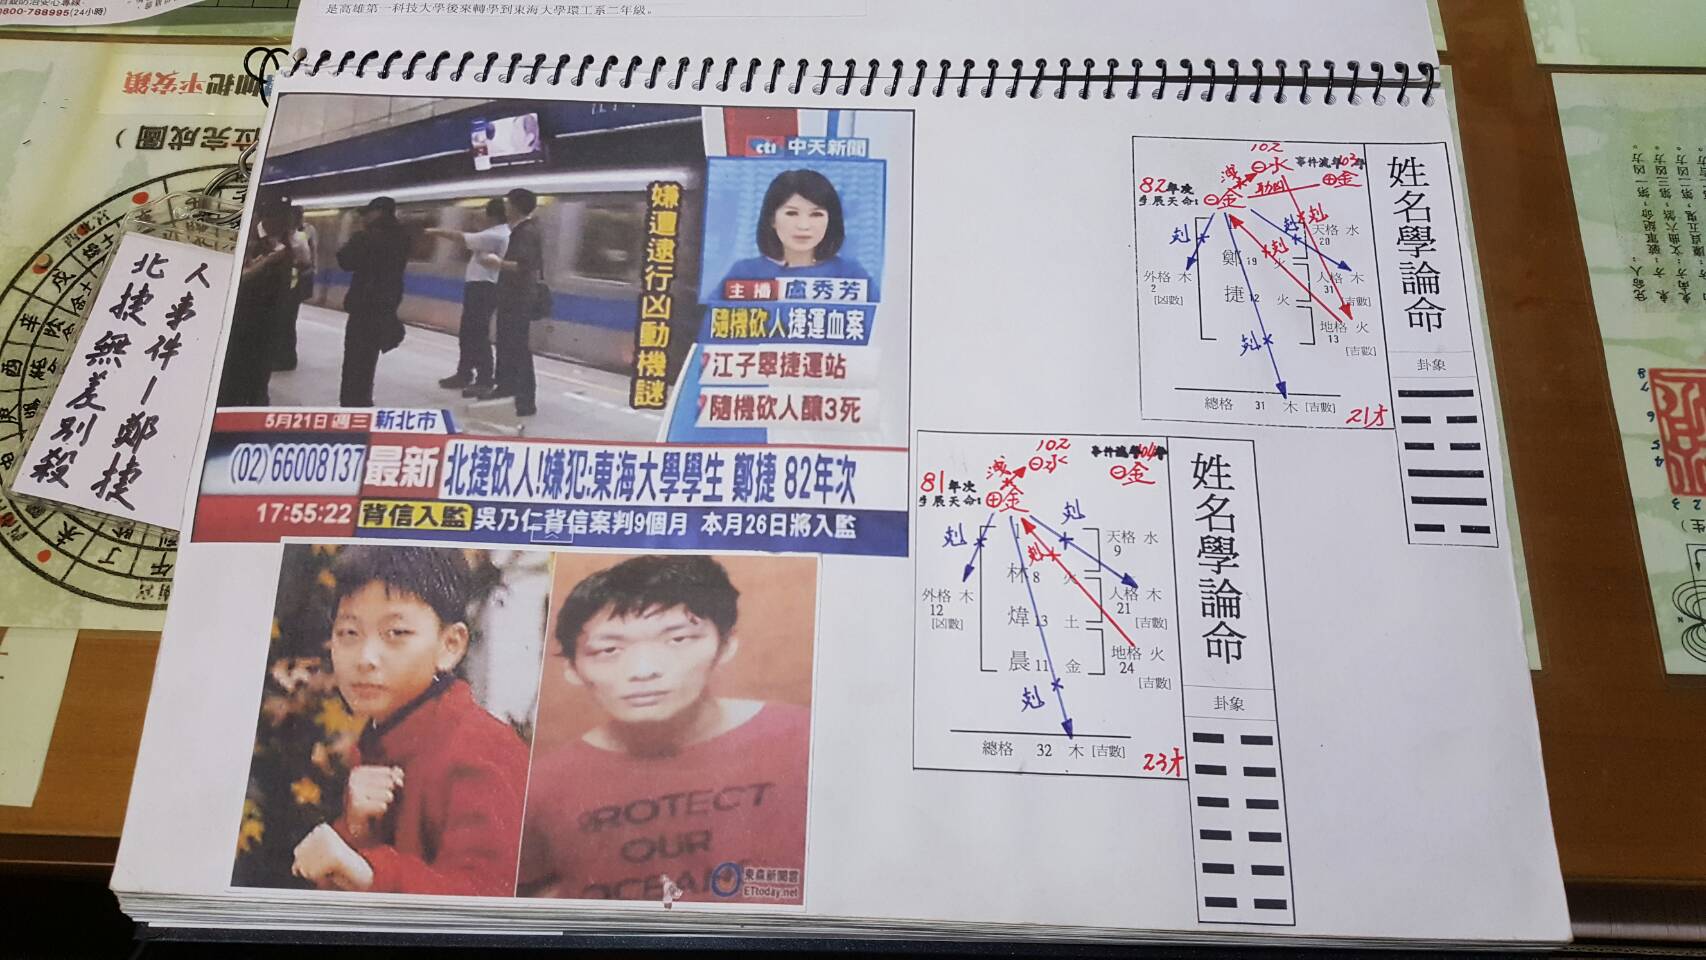 800-788995(24小時)
是高雄第一科技大學後來轉學到東海大學環工系二年級。
平安鎖
位完成圖)
人事件－鄭捷
北捷無差別殺
cti 中天新聞
嫌遭逮行凶動機謎
主播 盧秀芳
隨機砍人捷運血案
江子翠捷運站
隨機砍人釀3死
5月21日 週三 新北市
(02)66008137 最新 北捷砍人!嫌犯:東海大學學生 鄭捷 82年次
17:55:22 背信入監 吳乃仁背信案判9個月 本月26日將入監
PROTECT
OUR
OCEAN
東森新聞雲
ETtoday.net
姓名學論命
卦象
102
事件流年103年
⊖水
⊕金
82年次
⊖金
助剋
剋
剋
剋
剋
天格 水
20
鄭 19 火
外格 木
2
[凶數]
人格 木
31
[吉數]
捷 12 火
地格 火
13
[吉數]
剋
總格 31 木 [吉數]
21才
姓名學論命
卦象
102
事件流年104年
⊖水
⊖金
81年次
⊕金
剋
剋
剋
天格 水
9
林 8 火
外格 木
12
[凶數]
人格 木
21
[吉數]
煒 13 土
地格 火
24
[吉數]
晨 11 金
剋
總格 32 木 [吉數]
23才